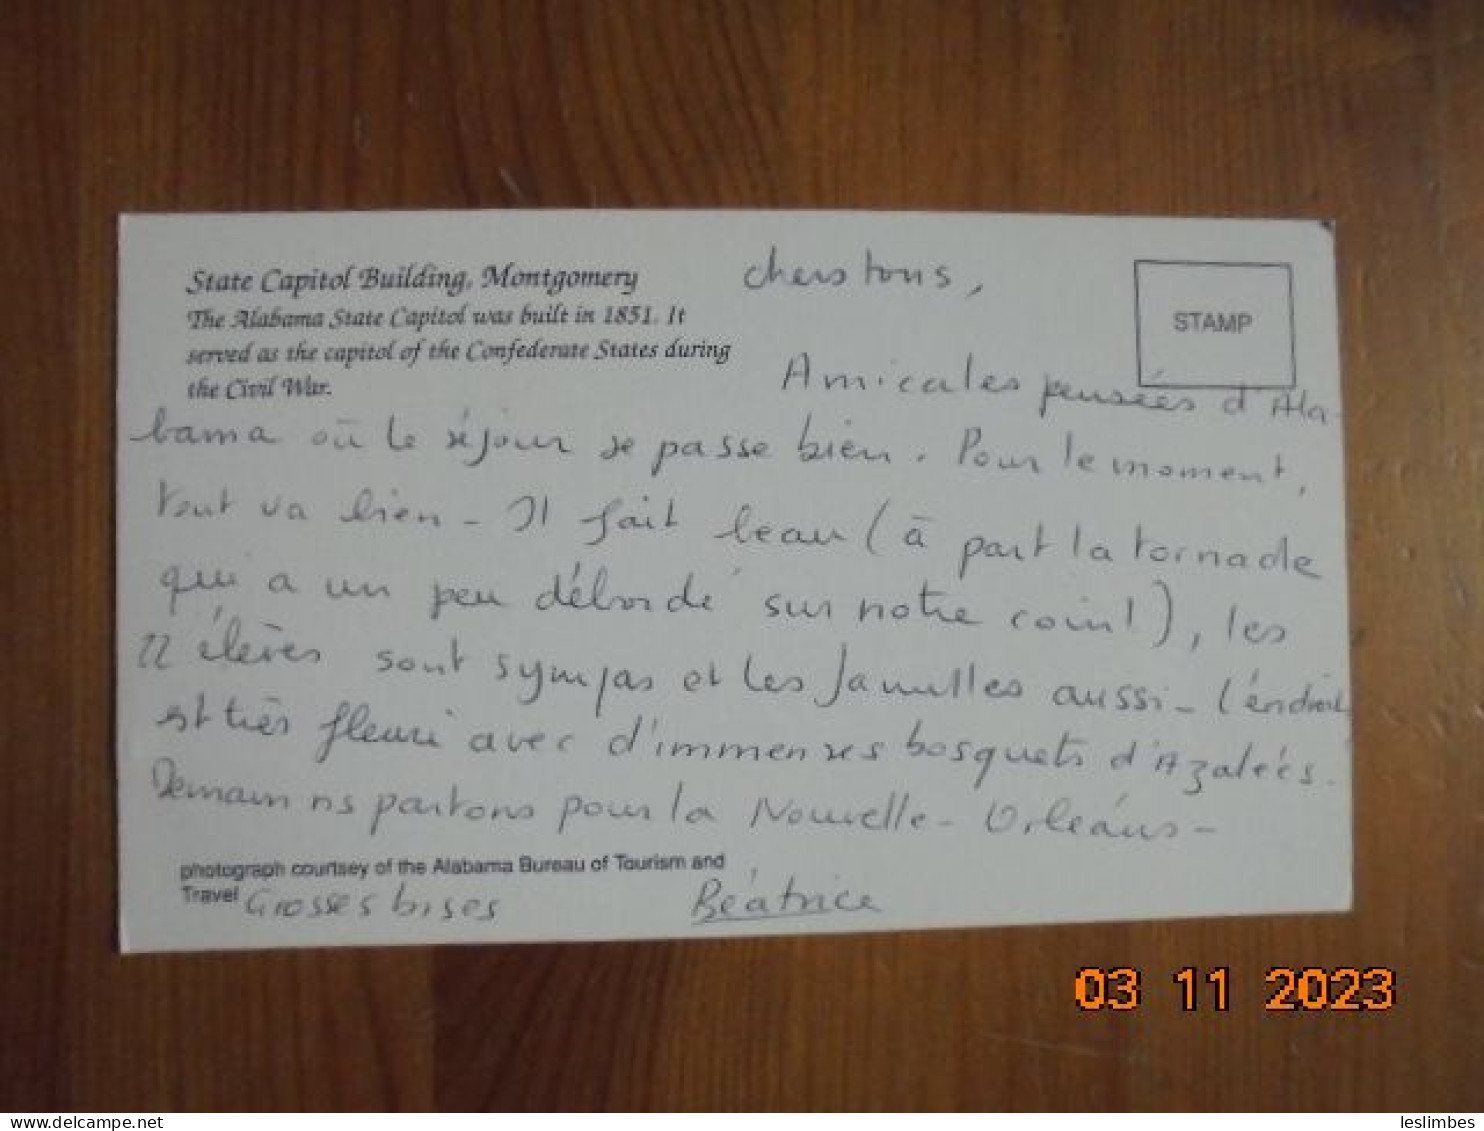 State Capitol Building, Montgomery
The Alabama State Capitol was built in 1851. It
served as the capitol of the Confederate States during
the Civil War.
STAMP
Chers tous,
Amicales pensées d'Ala-
bama où le séjour se passe bien. Pour le moment,
tout va bien - Il fait beau (à part la tornade
qui a un peu débordé sur notre coin!), les
22 élèves sont sympas et les familles aussi - l'endroit
est très fleuri avec d'immenses bosquets d'Azalées.
Demain ns partons pour la Nouvelle-Orléans -
photograph courtsey of the Alabama Bureau of Tourism and
Travel
Grosses bises
Béatrice
03 11 2023
leslimbes